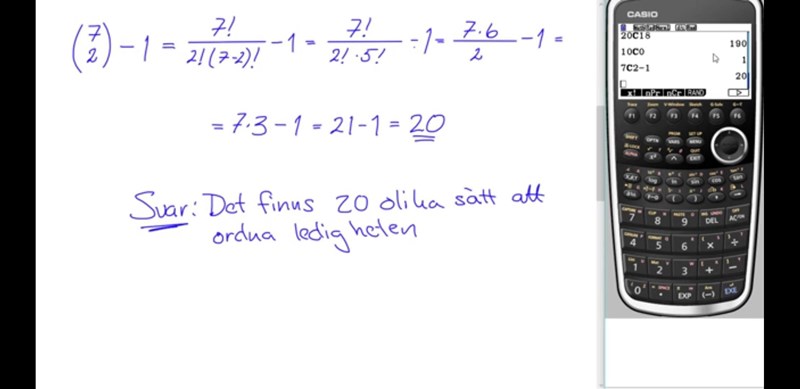 (7 2) − 1 = 7!/2!(7-2)! − 1 = 7!/2!·5! − 1 = 7·6/2 − 1 =
= 7·3 − 1 = 21 − 1 = 20
Svar: Det finns 20 olika sätt att
ordna ledigheten
CASIO
20C18
190
10C0
1
7C2-1
20
x! nPr nCr RAND
F1 F2 F3 F4 F5 F6
SHIFT OPTN VARS MENU
ALPHA x² ^ EXIT
X,θ,T log ln sin cos tan
7 8 9 DEL AC/ON
4 5 6 × ÷
1 2 3 + −
0 . EXP (−) EXE